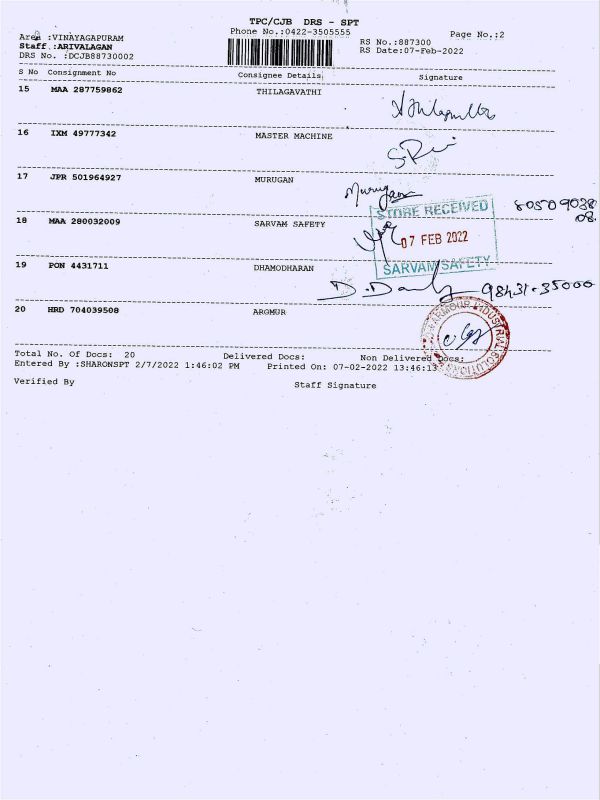 TPC/CJB DRS - SPT
Area :VINAYAGAPURAM
Phone No.:0422-3505555
Page No.:2
Staff :ARIVALAGAN
RS No.:887300
DRS No. :DCJB88730002
RS Date:07-Feb-2022
S No Consignment No Consignee Details Signature
15 MAA 287759862 THILAGAVATHI
16 IXM 49777342 MASTER MACHINE
17 JPR 501964927 MURUGAN
Murugan
STORE RECEIVED
80509038
08.
18 MAA 280032009 SARVAM SAFETY
07 FEB 2022
SARVAM SAFETY
19 PON 4431711 DHAMODHARAN
98431.35000
20 HRD 704039508 ARGMUR
Total No. Of Docs: 20 Delivered Docs: Non Delivered Docs:
Entered By :SHARONSPT 2/7/2022 1:46:02 PM Printed On: 07-02-2022 13:46:13
Verified By Staff Signature